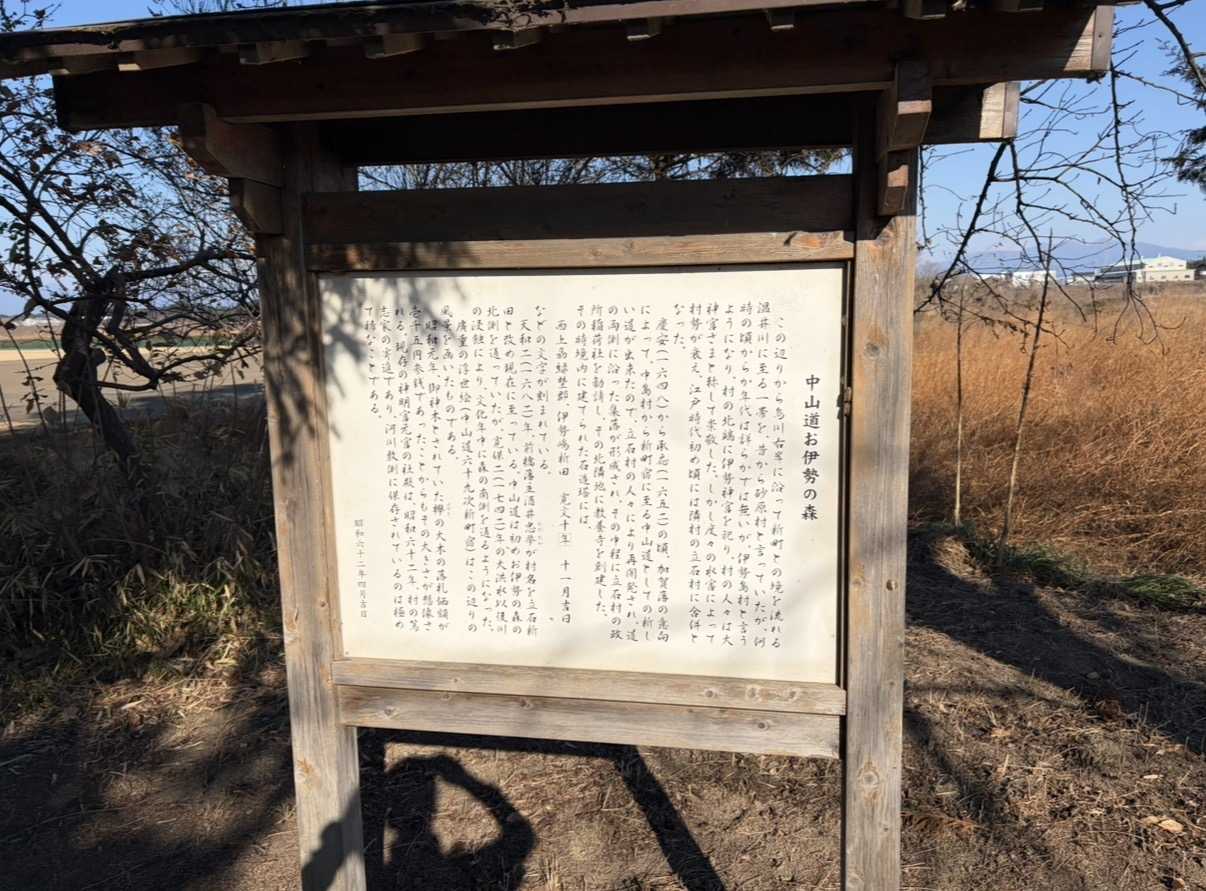 中山道お伊勢の森
この辺りから烏川右岸に沿って新町との境を流れる
温井川に至る一帯を、昔から砂原村と言っていたが、何
時の頃からか年代は詳らかでは無いが、伊勢島村と言う
ようになり、村の北端に伊勢神宮を祀り、村の人々は大
神宮さまと称して崇敬した。しかし度々の水害によって
村勢が衰え、江戸時代初め頃には隣村の立石村に合併と
なった。
慶安(一六四八)から承応(一六五二)の頃、加賀藩の意向
によって、中島村から新町宿に至る中山道としての新し
い道が出来たので、立石村の人々により再開発され、道
の両側に沿った集落が形成され、その中程に立石村の政
所稲荷社を勧請し、その北隣地に教養寺を創建した。
その時境内に建てられた石造塔には、
西上州緑埜郡、伊勢嶋新田 寛文十年 十一月吉日
などの文字が刻まれている。
天和二(一六八二)年、前橋藩主酒井忠挙が村名を立石新
田と改め現在に至っている。中山道は初めお伊勢の森の
北側を通っていたが、寛保二(一七四二)年の大洪水以後川
の浸蝕により、文化年中に森の南側を通るようになった。
廣重の浮世絵(中山道六十九次新町宿)はこの辺りの
風景を画いたものである。
昭和元年、御神木とされていた欅の大木の落札価額が
壱千五円参銭であったことからもその大きさが想像さ
れる。現存の神明宮元宮の社殿は、昭和六十二年、村の篤
志家の寄進であり、河川敷測に保存されているのは極め
て稀なことである。
昭和六十二年四月吉日